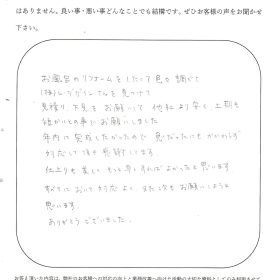 はありません。良い事・悪い事どんなことでも結構です。ぜひお客様の声をお聞かせ
下さい。
お風呂のリフォームをしたくて色々調べて
リビングリンさんを見つけて
見積り、下見をお願いして 他社より安く 工期も
短かいとの事でお願いしました
年内に完成したかったので 急だったにもかかわらず
対応して頂き 感謝してます。
仕上りも美しく もっと早くすればよかったと思います。
すべてにおいて対応よく、また次もお願いしようと
思います。
ありがとうございました。